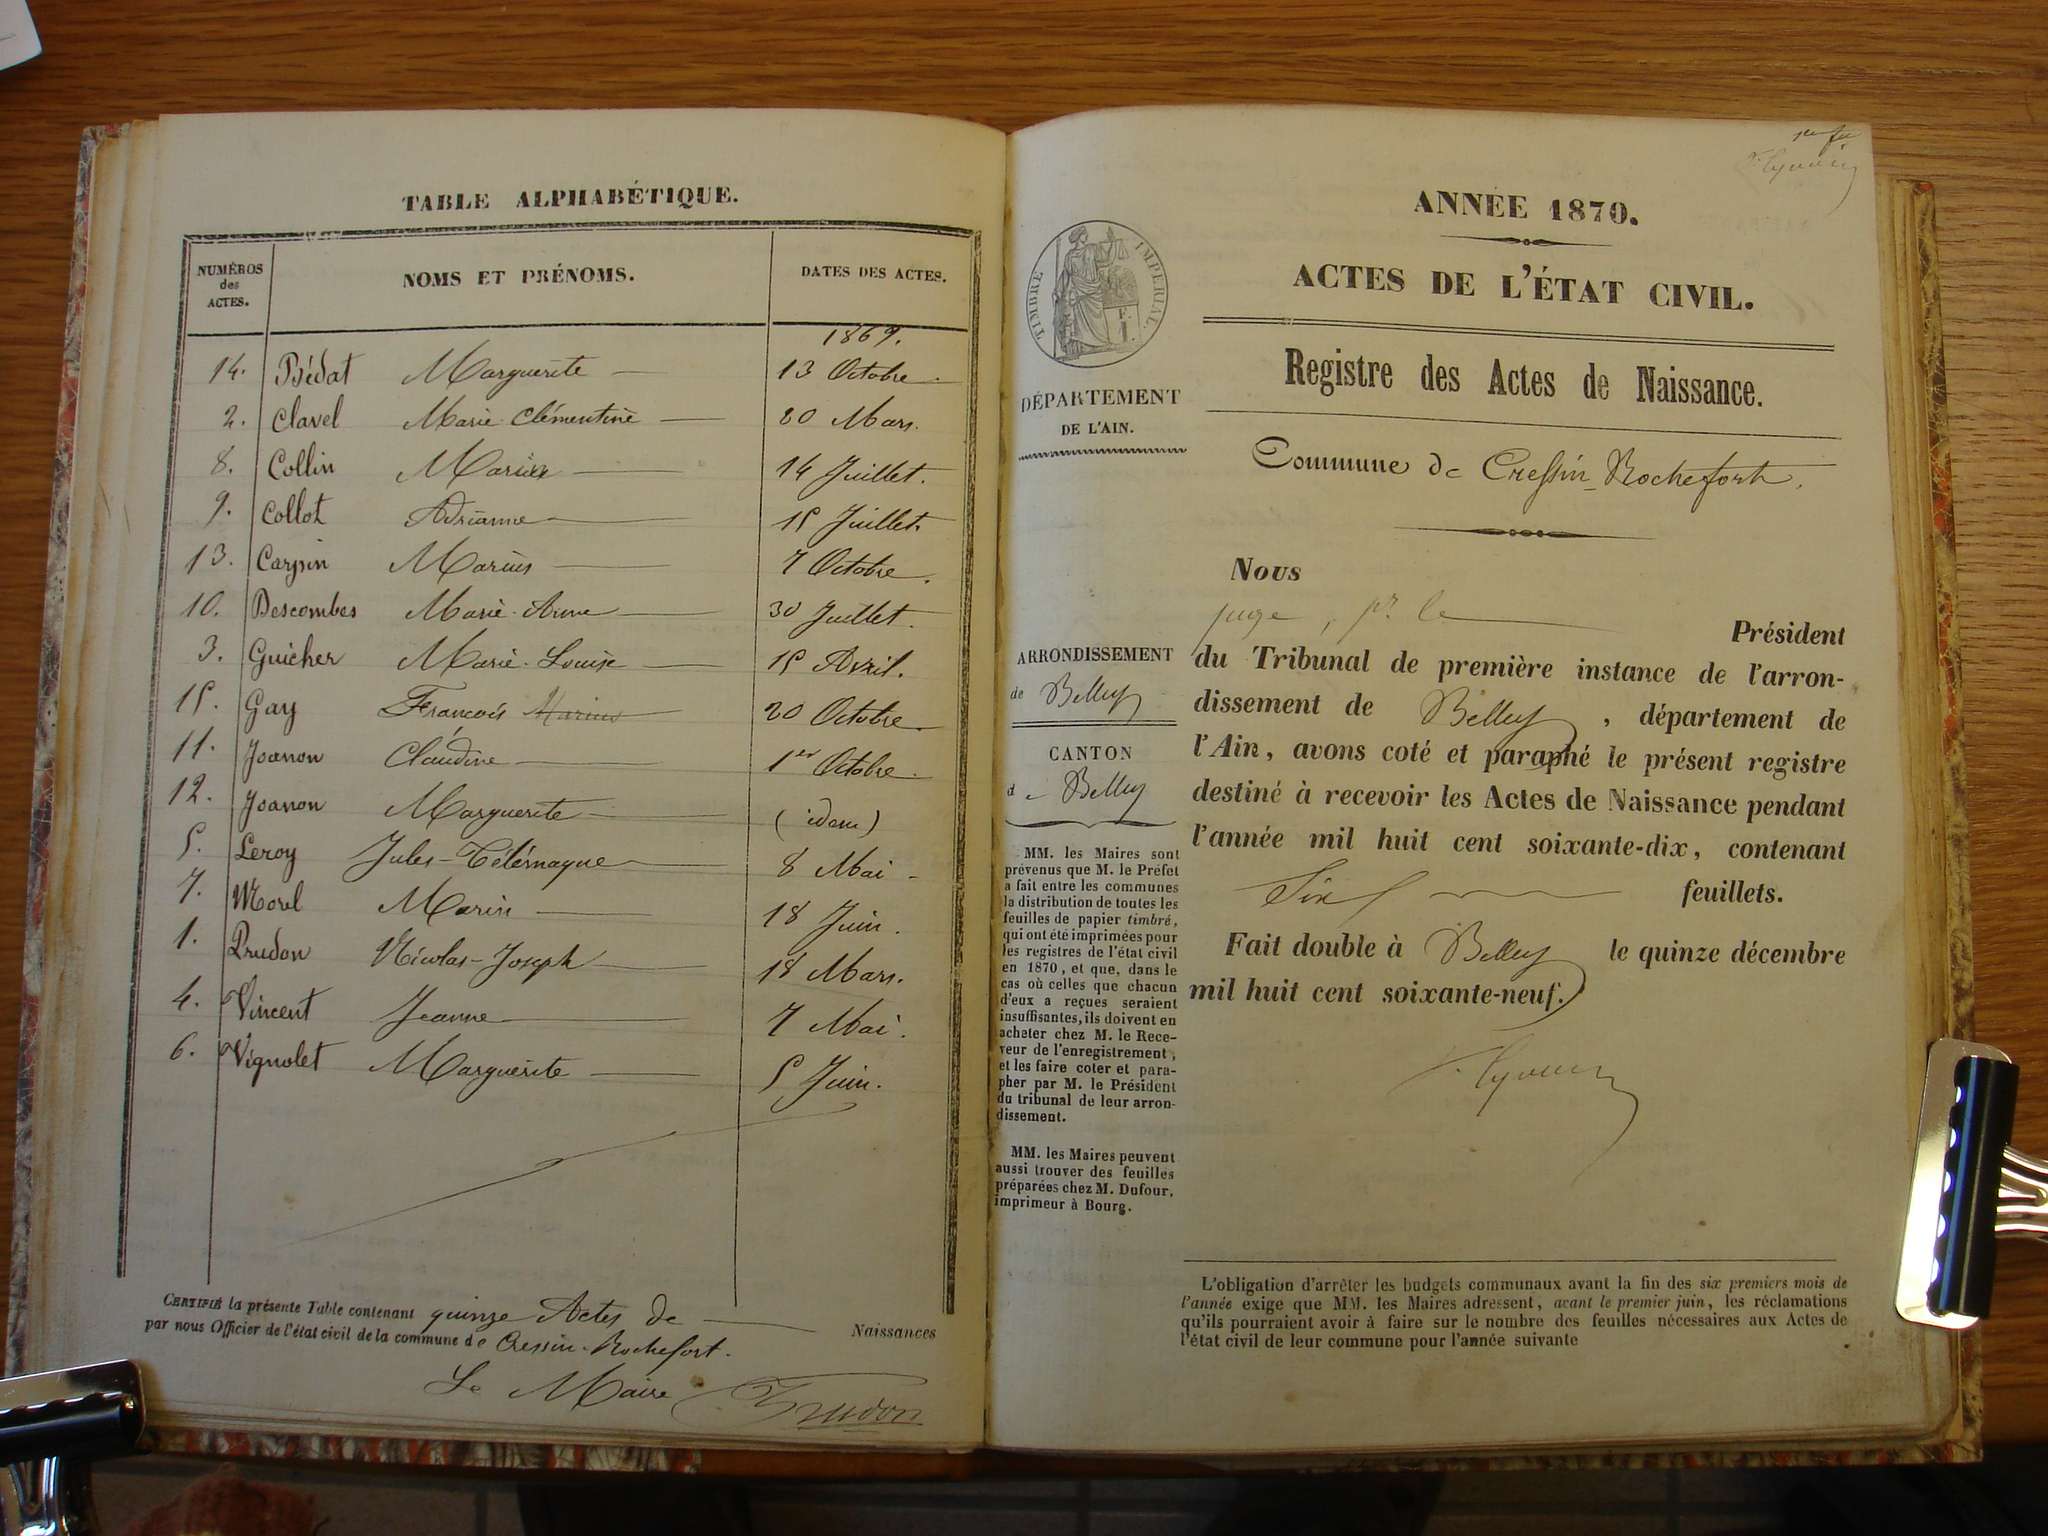 TABLE ALPHABÉTIQUE.
NUMÉROS des ACTES.
NOMS ET PRÉNOMS.
DATES DES ACTES.
1869.
14. Bédat Marguerite 13 Octobre.
2. Clavel Marie Clémentine 20 Mars.
8. Collin 14 Juillet.
9. Collot Adrianne 15 Juillet.
13. Carpin Marius 7 Octobre.
10. Descombes Marie-Anne 30 Juillet.
3. Guicher Marie-Louise 15 Avril.
15. Gay François Marius 20 Octobre.
11. Joanon Claudine 1er Octobre.
12. Joanon Marguerite (idem)
5. Leroy Jules-Télémaque 8 Mai
7. Morel Marin 18 Juin.
1. Prudon Nicolas-Joseph 18 Mars.
4. Vincent Jeanne 7 Mai.
6. Vignolet Marguerite 5 Juin.
CERTIFIÉ la présente Table contenant quinze Actes de Naissances
par nous Officier de l'état civil de la commune de Cressin-Rochefort.
Le Maire Prudon
ANNÉE 1870.
ACTES DE L'ÉTAT CIVIL.
TIMBRE IMPÉRIAL.
1 F.
Registre des Actes de Naissance.
DÉPARTEMENT
DE L'AIN.
Commune de Cressin-Rochefort.
ARRONDISSEMENT
de Belley
CANTON
de Belley
Nous
juge, pr. le Président
du Tribunal de première instance de l'arron-
dissement de Belley, département de
l'Ain, avons coté et paraphé le présent registre
destiné à recevoir les Actes de Naissance pendant
l'année mil huit cent soixante-dix, contenant
Six feuillets.
Fait double à Belley le quinze décembre
mil huit cent soixante-neuf.
MM. les Maires sont
prévenus que M. le Préfet
a fait entre les communes
la distribution de toutes les
feuilles de papier timbré,
qui ont été imprimées pour
les registres de l'état civil
en 1870, et que, dans le
cas où celles que chacun
d'eux a reçues seraient
insuffisantes, ils doivent en
acheter chez M. le Rece-
veur de l'enregistrement,
et les faire coter et para-
pher par M. le Président
du tribunal de leur arron-
dissement.
MM. les Maires peuvent
aussi trouver des feuilles
préparées chez M. Dufour,
imprimeur à Bourg.
L'obligation d'arrêter les budgets communaux avant la fin des six premiers mois de
l'année exige que MM. les Maires adressent, avant le premier juin, les réclamations
qu'ils pourraient avoir à faire sur le nombre des feuilles nécessaires aux Actes de
l'état civil de leur commune pour l'année suivante